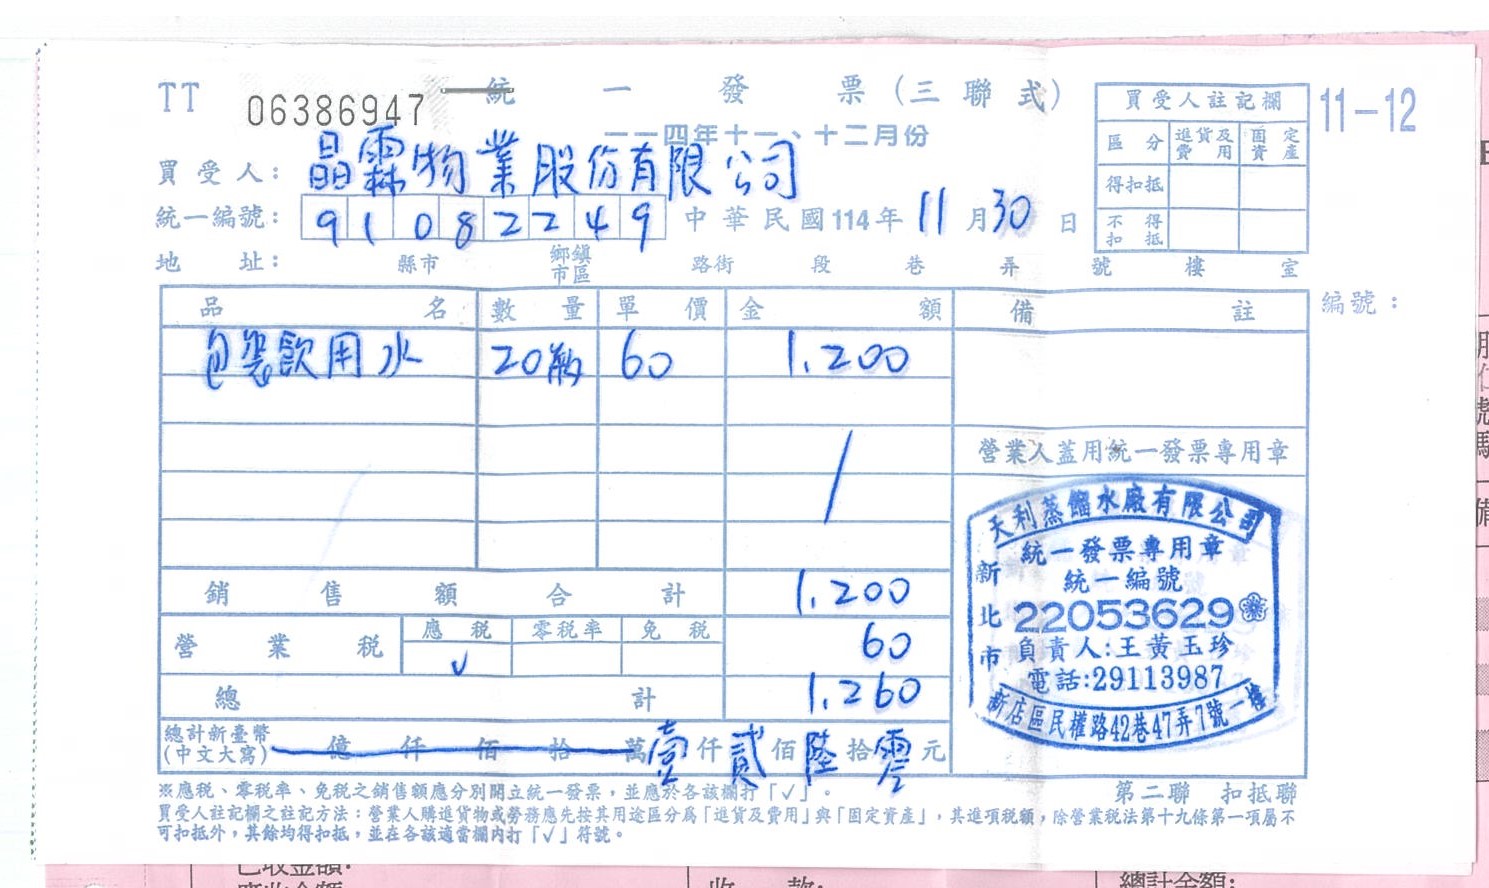 TT 06386947 統一發票(三聯式)
一一四年十一、十二月份
11-12
買受人註記欄
區分 進貨及費用 固定資產
得扣抵
不得扣抵
買受人: 晶霖物業股份有限公司
統一編號: 91082249 中華民國114年11月30日
地址: 縣市 鄉鎮市區 路街 段 巷 弄 號 樓 室
品名 數量 單價 金額 備註 編號:
包裝飲用水 20瓶 60 1,200
營業人蓋用統一發票專用章
銷售額合計 1,200
營業稅 應稅 零稅率 免稅 60
√
總計 1,260
總計新臺幣(中文大寫) 億仟佰拾萬壹仟貳佰陸拾零元
天利蒸餾水廠有限公司
統一發票專用章
統一編號
新北市
22053629
負責人:王黃玉珍
電話:29113987
新店區民權路42巷47弄7號一樓
※應稅、零稅率、免稅之銷售額應分別開立統一發票,並應於各該欄打「√」。
第二聯 扣抵聯
買受人註記欄之註記方法:營業人購進貨物或勞務應先按其用途區分為「進貨及費用」與「固定資產」,其進項稅額,除營業稅法第十九條第一項屬不
可扣抵外,其餘均得扣抵,並在各該適當欄內打「√」符號。
已收金額:
收款:
總計金額: